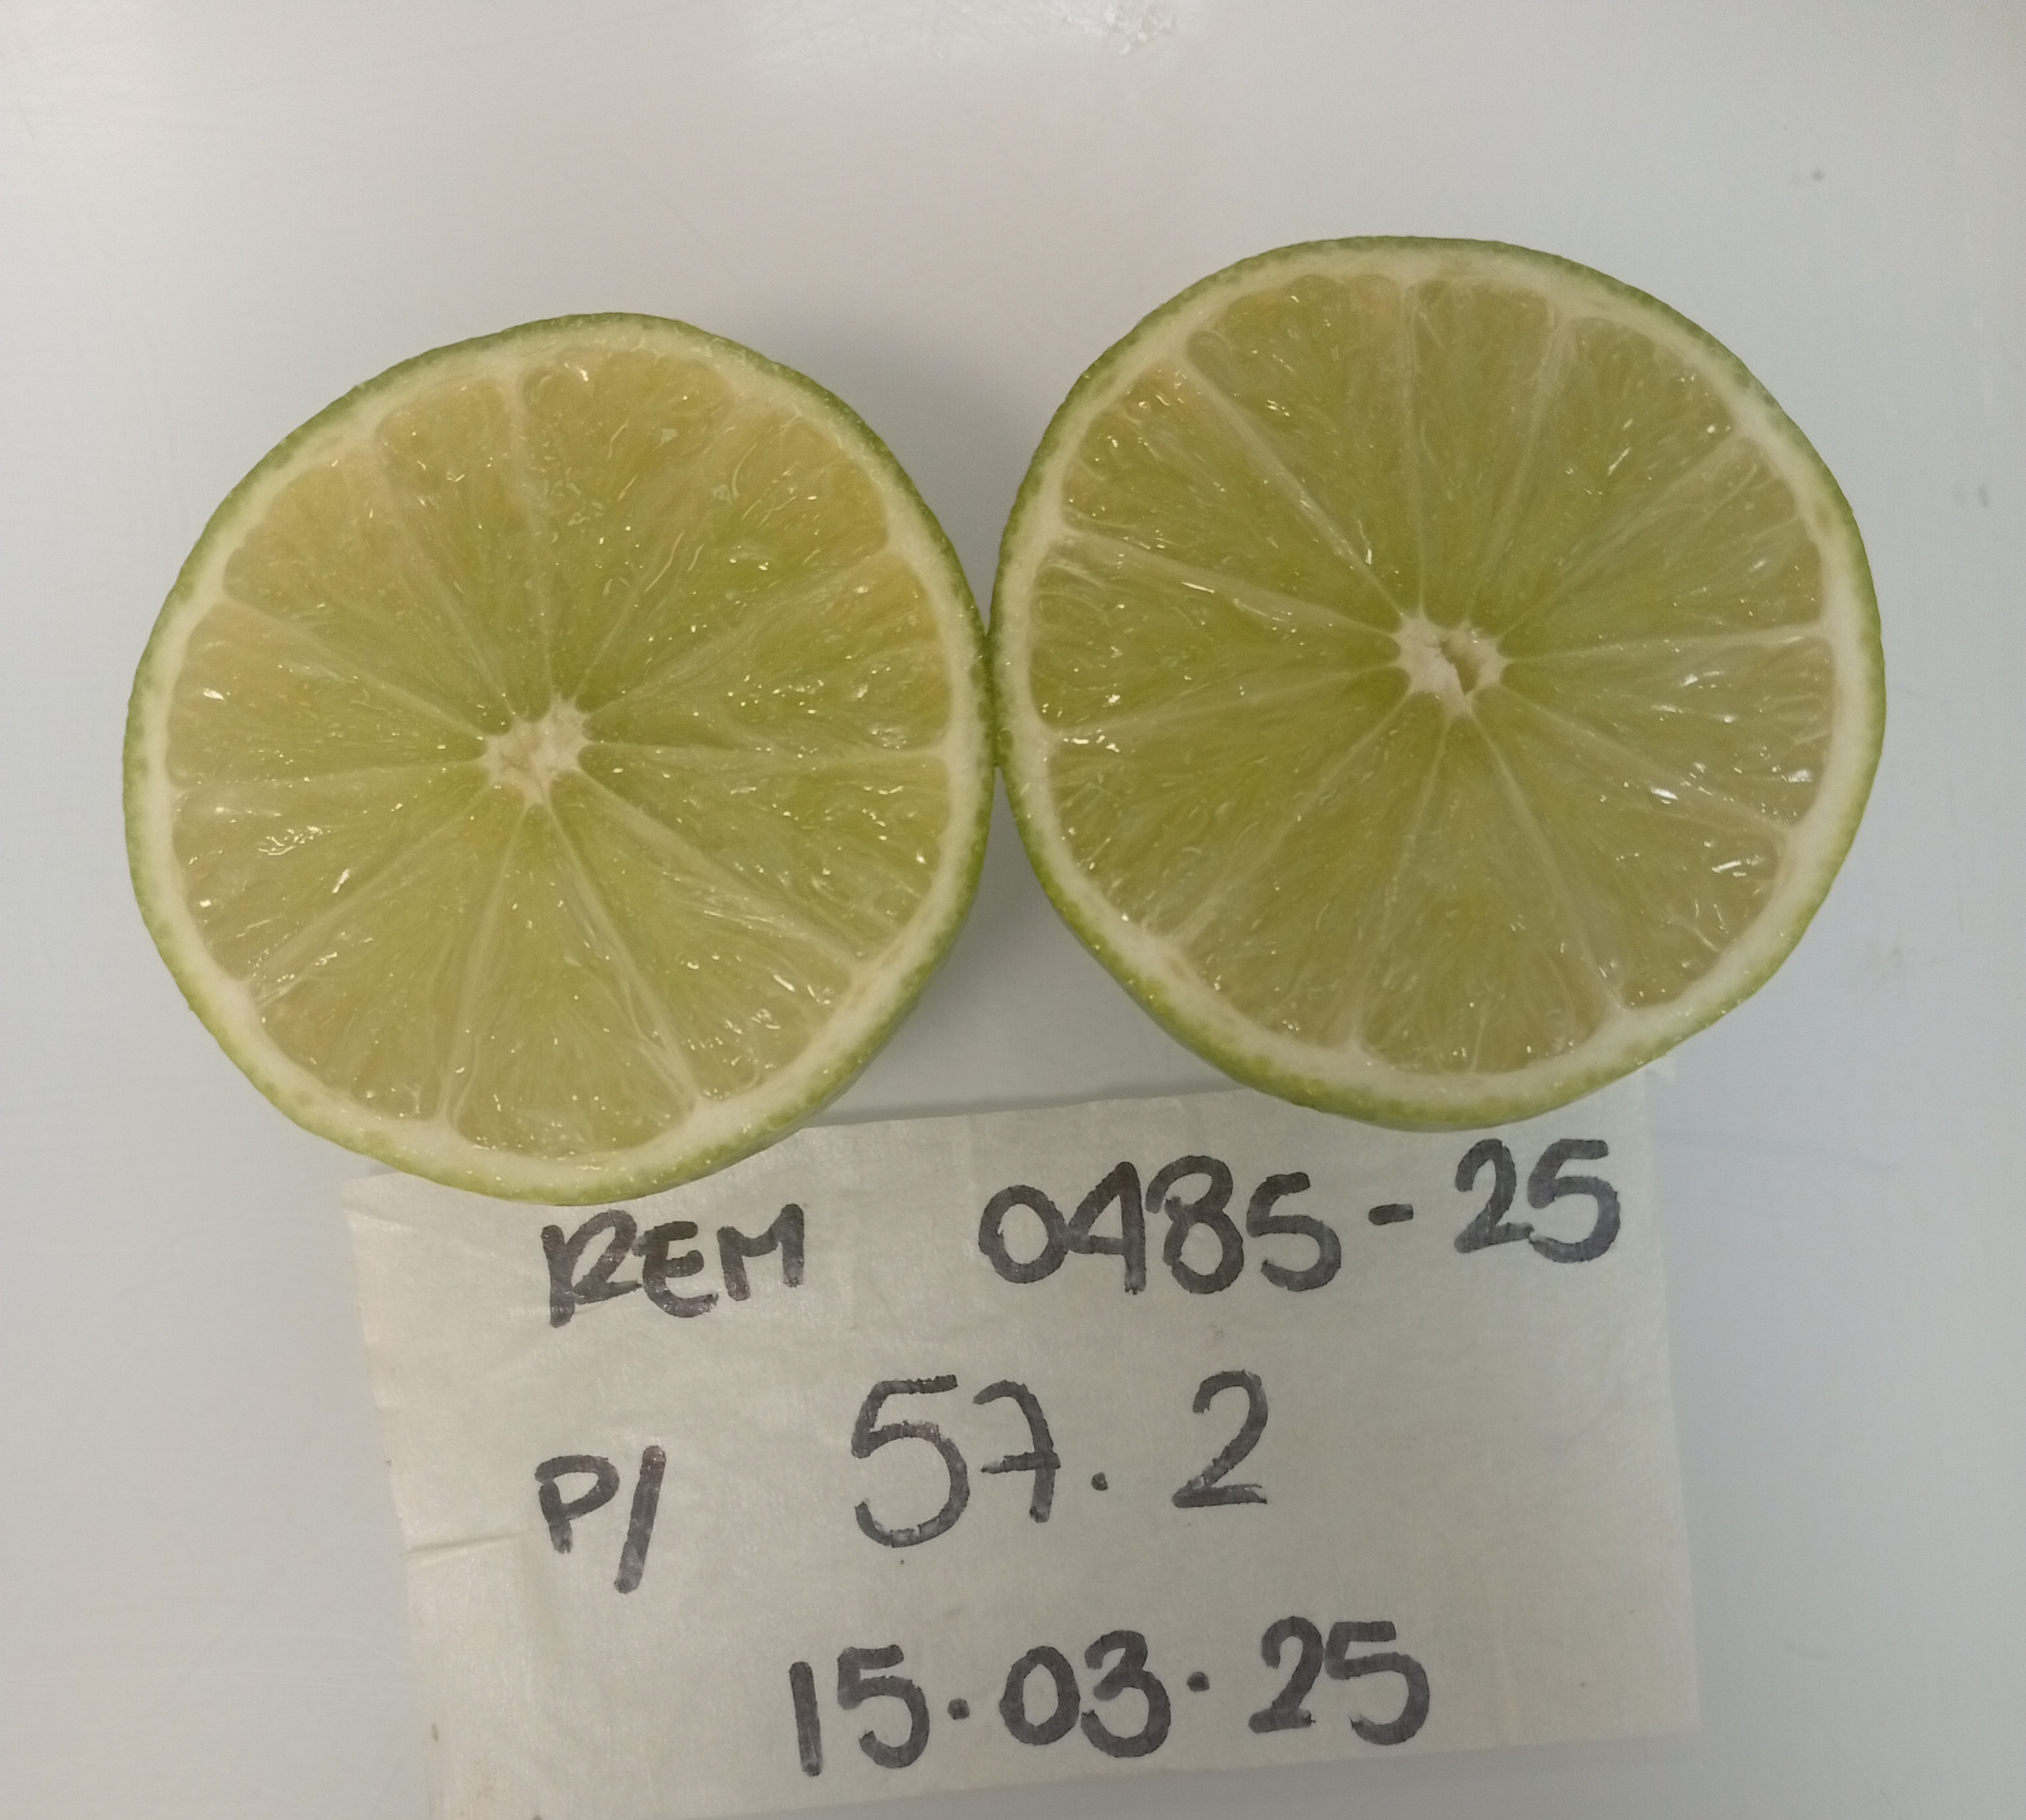 REM 0485-25
P/ 57.2
15.03.25